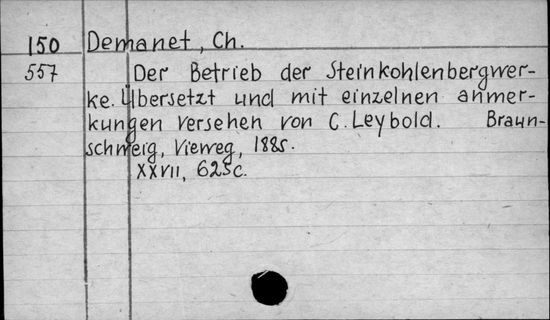 150 Demanet, Ch.
557 Der Betrieb der Steinkohlenbergwer-
ke. Übersetzt und mit einzelnen anmer-
kungen versehen von C. Leybold. Braun-
schweig, Vieweg, 1885.
XXVII, 625c.